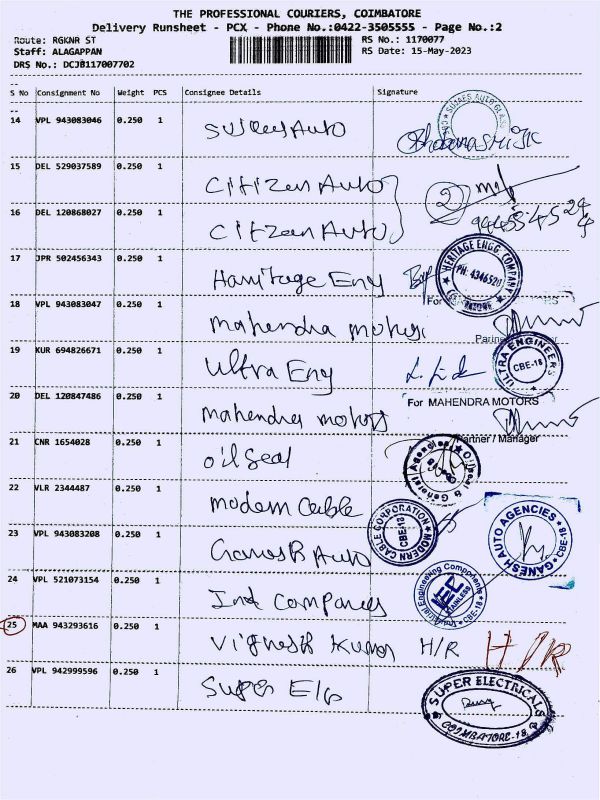 THE PROFESSIONAL COURIERS, COIMBATORE
Delivery Runsheet - PCX - Phone No.:0422-3505555 - Page No.:2
Route: RGKNR ST RS No.: 1170077
Staff: ALAGAPPAN RS Date: 15-May-2023
DRS No.: DCJB117007702
S No Consignment No Weight PCS Consignee Details Signature
14 VPL 943083046 0.250 1 Auto
15 DEL 529037589 0.250 1 Citizen Auto
16 DEL 120868027 0.250 1 Citizen Auto
2
17 JPR 502456343 0.250 1 Haritage Eng
HERITAGE ENGG. COMPANY
PH: 4346520
For
18 VPL 943083047 0.250 1 mahendra motors
19 KUR 694826671 0.250 1 Ultra Eng
ULTRA ENGINEERS
CBE-18
20 DEL 120847486 0.250 1 mahendra motors
For MAHENDRA MOTORS
Partner / Manager
21 CNR 1654028 0.250 1 oil seal
Oilseal & General Agencies
22 VLR 2344487 0.250 1 modern Cable
MODERN CABLE CORPORATION
CBE-18
23 VPL 943083208 0.250 1 Auto
GANESH AUTO AGENCIES
CBE-18
24 VPL 521073154 0.250 1 Ind Companes
Industrial Engineering Components
IEC
CBE-18
25 MAA 943293616 0.250 1 Vignesh Kumar H/R H/R
26 VPL 942999596 0.250 1 Super Ele
SUPER ELECTRICALS
COIMBATORE-18